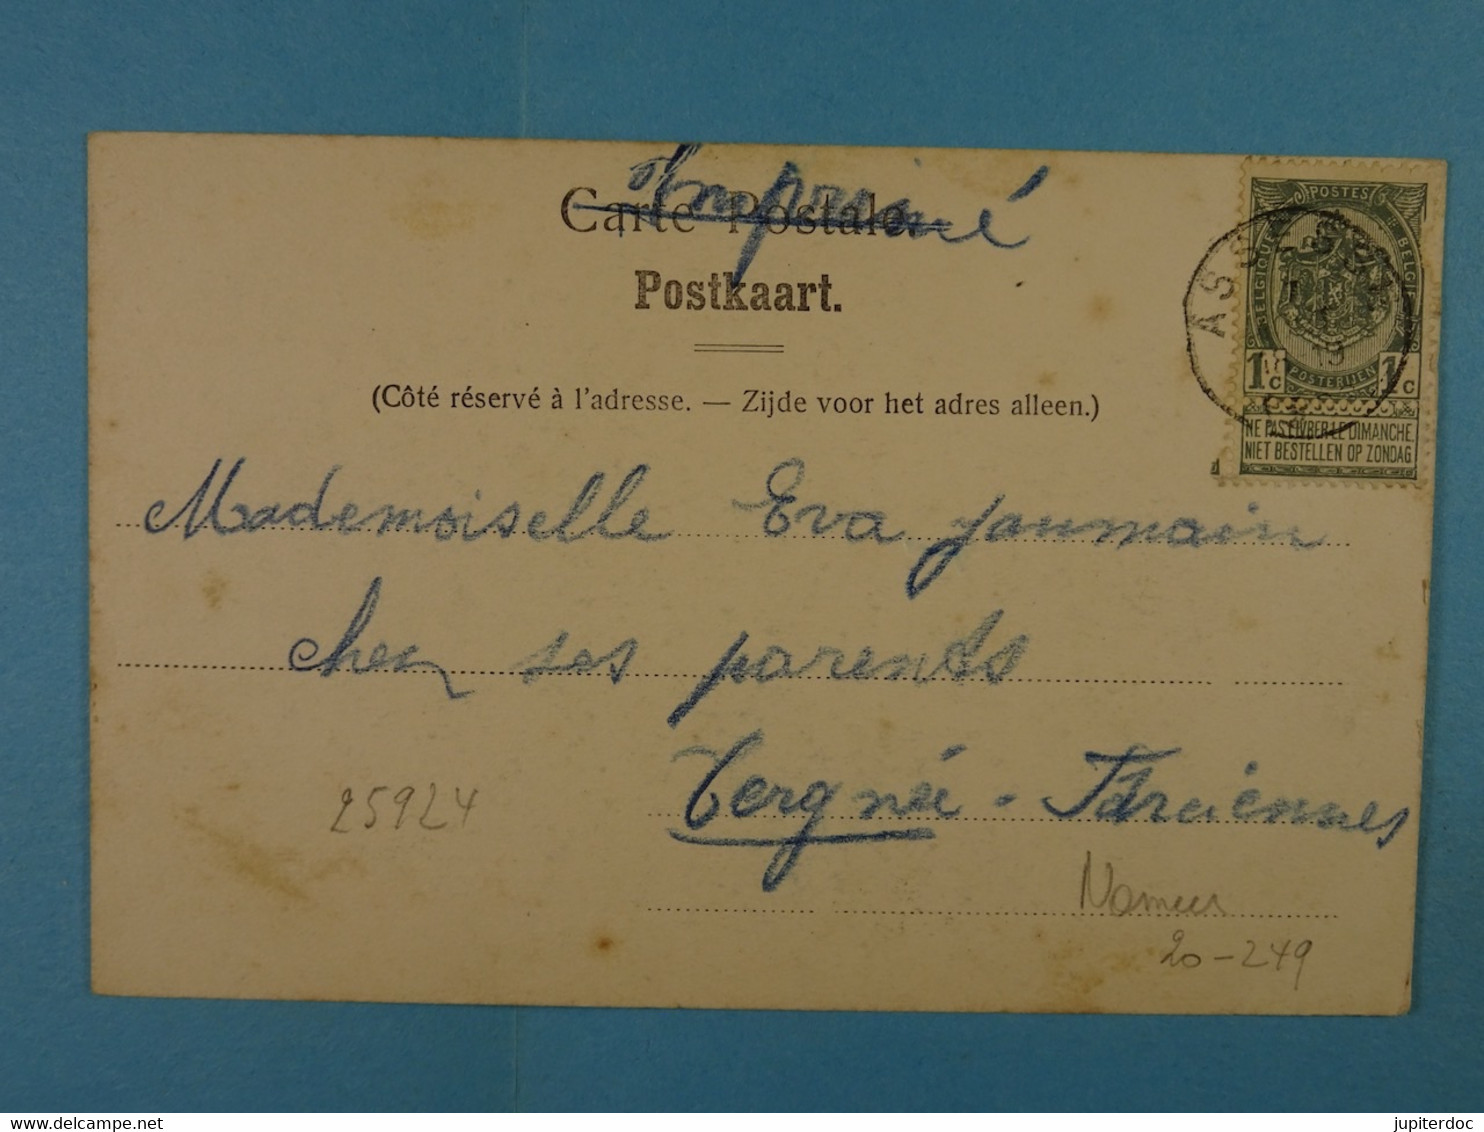 Imprimé
Carte Postale.
Postkaart.
(Côté réservé à l'adresse. — Zijde voor het adres alleen.)
POSTES
BELGIQUE
BELGIË
1c POSTERIJEN 1c
NE PAS LIVRER LE DIMANCHE
NIET BESTELLEN OP ZONDAG
ASSESSE
Mademoiselle Eva Jaumain
chez ses parents
Tergnée - Farciennes
25924
Namur
20-249
www.delcampe.net
jupiterdoc